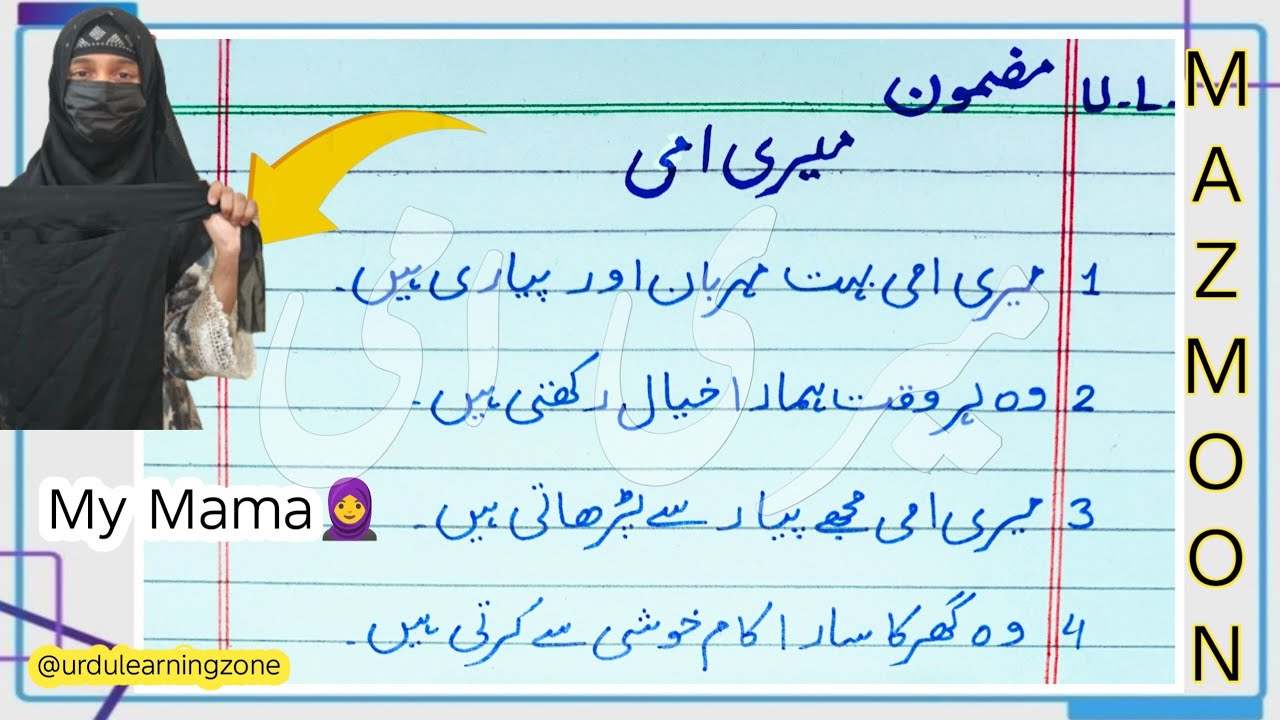 U.L.
مضمون
میری امی
1 میری امی بہت مہربان اور پیاری ہیں۔
2 وہ ہر وقت ہمارا خیال رکھتی ہیں۔
3 میری امی مجھے پیار سے پڑھاتی ہیں۔
4 وہ گھر کا سارا کام خوشی سے کرتی ہیں۔
میری امی
My Mama
@urdulearningzone
MAZMOON